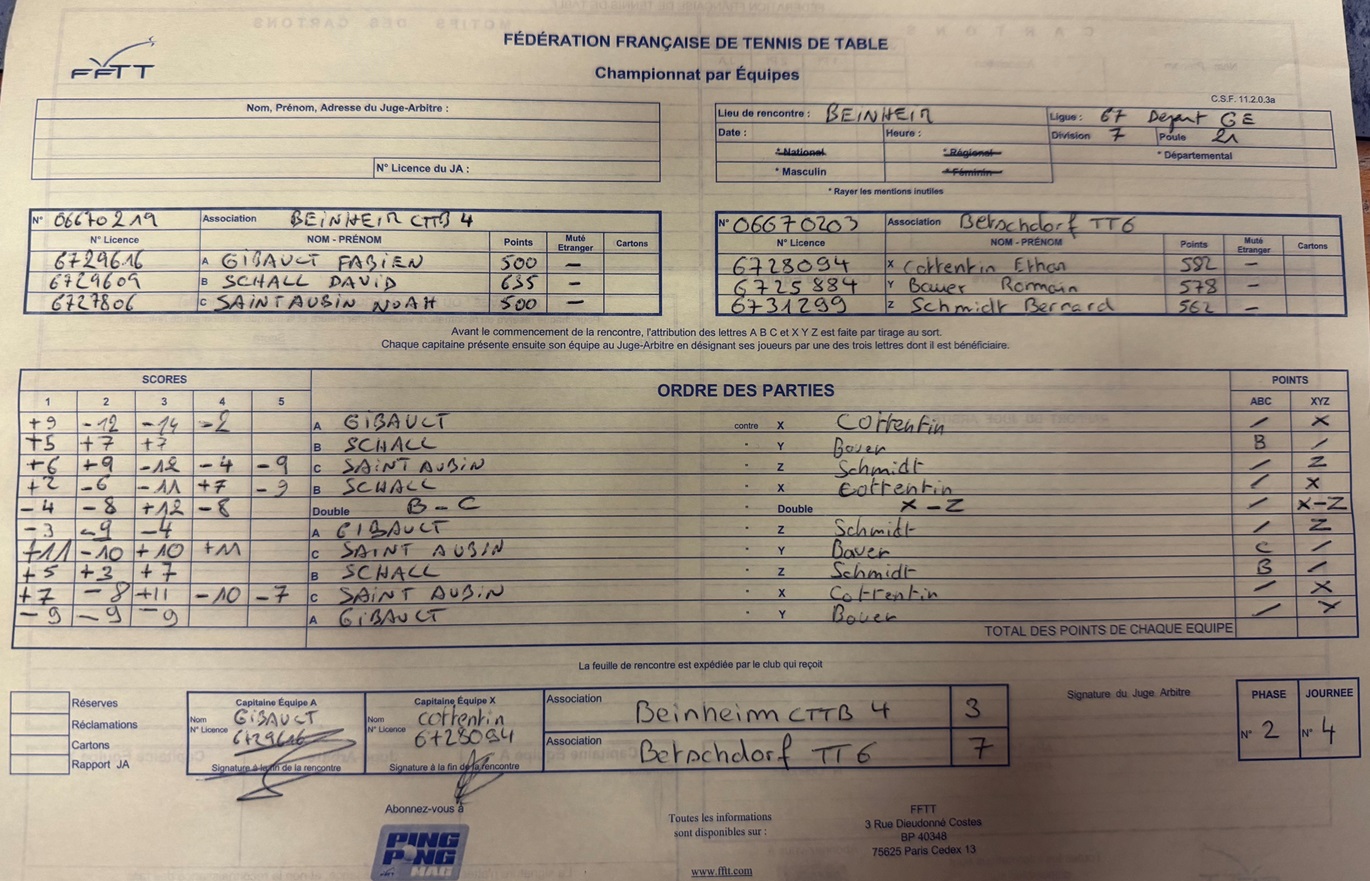 FFTT
FÉDÉRATION FRANÇAISE DE TENNIS DE TABLE
Championnat par Équipes
C.S.F. 11.2.0.3a
Nom, Prénom, Adresse du Juge-Arbitre :
N° Licence du JA :
Lieu de rencontre : BEINHEIM Ligue : 67 Depart GE
Date : Heure : Division 7 Poule 21
* National * Régional * Départemental
* Masculin * Féminin
* Rayer les mentions inutiles
N° 06670219 Association BEINHEIM CTTB 4
N° Licence NOM - PRÉNOM Points Muté Etranger Cartons
6729616 A GIBAULT FABIEN 500 —
6729609 B SCHALL DAVID 635 —
6727806 C SAINT AUBIN NOAH 500 —
N° 06670203 Association Betschdorf TT6
N° Licence NOM - PRÉNOM Points Muté Etranger Cartons
6728094 X Cottentin Ethan 582 —
6725884 Y Bauer Romain 578 —
6731299 Z Schmidt Bernard 562 —
Avant le commencement de la rencontre, l'attribution des lettres A B C et X Y Z est faite par tirage au sort.
Chaque capitaine présente ensuite son équipe au Juge-Arbitre en désignant ses joueurs par une des trois lettres dont il est bénéficiaire.
SCORES ORDRE DES PARTIES POINTS
1 2 3 4 5 ABC XYZ
+9 -12 -14 -2 A GIBAULT contre X Cottentin / X
+5 +7 +7 B SCHALL " Y Bauer B /
+6 +9 -12 -4 -9 C SAINT AUBIN " Z Schmidt / Z
+2 -6 -11 +7 -9 B SCHALL " X Cottentin / X
-4 -8 +12 -8 Double B-C " Double X-Z / X-Z
-3 -9 -4 A GIBAULT " Z Schmidt / Z
+11 -10 +10 +11 C SAINT AUBIN " Y Bauer C /
+5 +3 +7 B SCHALL " Z Schmidt B /
+7 -8 +11 -10 -7 C SAINT AUBIN " X Cottentin / X
-9 -9 -9 A GIBAULT " Y Bauer / Y
TOTAL DES POINTS DE CHAQUE EQUIPE
La feuille de rencontre est expédiée par le club qui reçoit
Réserves
Réclamations
Cartons
Rapport JA
Capitaine Équipe A
Nom GIBAULT
N° Licence 6729616
Signature à la fin de la rencontre
Capitaine Équipe X
Nom Cottentin
N° Licence 6728094
Signature à la fin de la rencontre
Association Beinheim CTTB 4 3
Association Betschdorf TT6 7
Signature du Juge Arbitre
PHASE JOURNEE
N° 2 N° 4
Abonnez-vous à
PING PONG MAG
Toutes les informations
sont disponibles sur :
www.fftt.com
FFTT
3 Rue Dieudonné Costes
BP 40348
75625 Paris Cedex 13